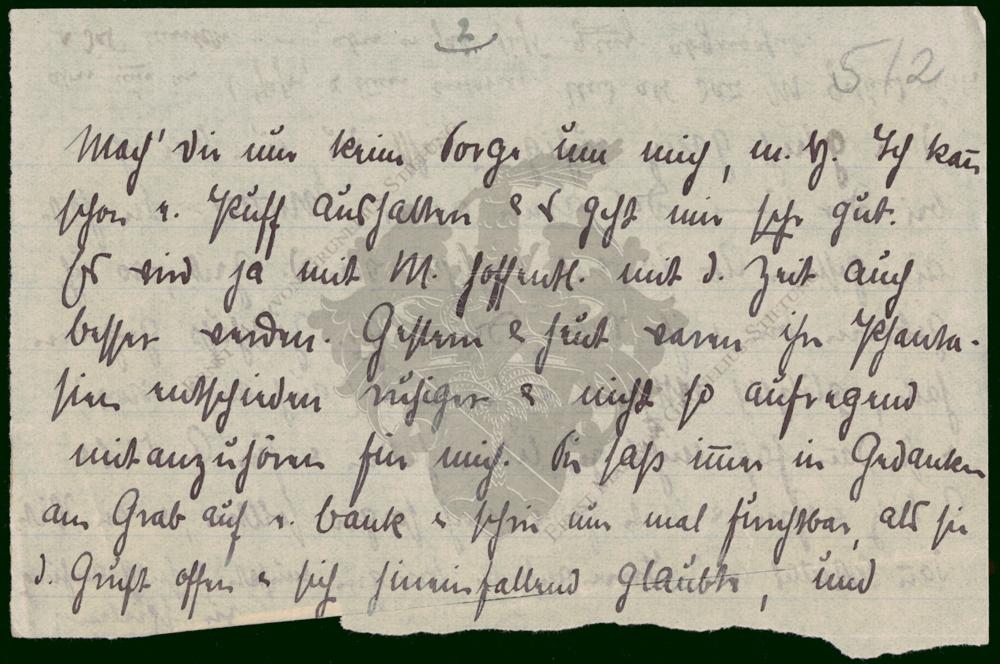 2
512
Mach' dir nur keine Sorge um mich, m. H. Ich kan̄
schon e. Puff aushalten & es geht mir sehr gut.
Es wird ja mit M. hoffentl. mit d. Zeit auch
besser werden. Gestern & heut waren ihre Phanta-
sien entschieden ruhiger & nicht so aufregend
mitanzuhören für mich. Sie saß im̄er in Gedanken
am Grab auf e. Bank & schrie nur mal furchtbar, als sie
d. Gruft offen & sich hineinfallend glaubte, und